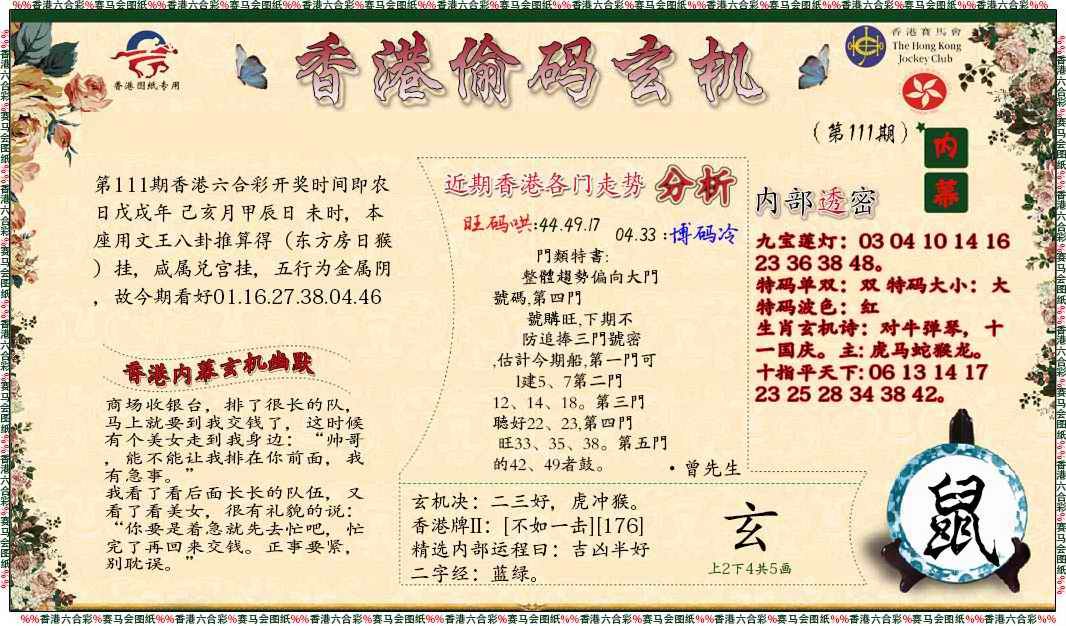 %%香港六合彩%赛马会图纸%%香港六合彩%赛马会图纸%%香港六合彩%赛马会图纸%%香港六合彩%赛马会图纸%%香港六合彩%赛马会图纸%%香港六合彩%赛马会图纸%%香港六合彩%%
香港图纸专用
香港偷码玄机
香港賽馬會
The Hong Kong
Jockey Club
(第111期)
内
幕
第111期香港六合彩开奖时间即农
日戊戌年 己亥月甲辰日 未时，本
座用文王八卦推算得（东方房日猴
）挂，咸属兑宫挂，五行为金属阴
，故今期看好01.16.27.38.04.46
香港内幕玄机幽默
商场收银台，排了很长的队，
马上就要到我交钱了，这时候
有个美女走到我身边：“帅哥
，能不能让我排在你前面，我
有急事。”
我看了看后面长长的队伍，又
看了看美女，很有礼貌的说：
“你要是着急就先去忙吧，忙
完了再回来交钱。正事要紧，
别耽误。”
近期香港各门走势 分析
旺码哄:44.49.17
04.33 :博码冷
門類特書:
整體趨勢偏向大門
號碼,第四門
號購旺,下期不
防追捧三門號密
,估計今期船,第一門可
1建5、7第二門
12、14、18。第三門
聽好22、23,第四門
旺33、35、38。第五門
的42、49者鼓。
·曾先生
玄机决：二三好，虎冲猴。
香港牌II：[不如一击][176]
精选内部运程曰：吉凶半好
二字经：蓝绿。
玄
上2下4共5画
内部透密
九宝莲灯：03 04 10 14 16
23 36 38 48。
特码单双：双 特码大小：大
特码波色：红
生肖玄机诗：对牛弹琴，十
一国庆。主: 虎马蛇猴龙。
十指平天下: 06 13 14 17
23 25 28 34 38 42。
鼠
%%香港六合彩%赛马会图纸%%香港六合彩%赛马会图纸%%香港六合彩%赛马会图纸%%香港六合彩%赛马会图纸%%香港六合彩%赛马会图纸%%香港六合彩%赛马会图纸%%香港六合彩%%